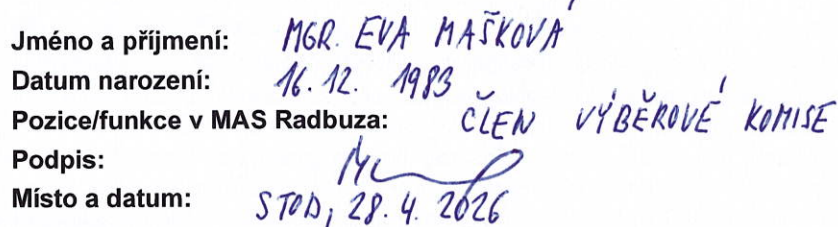 Jméno a příjmení: MGR. EVA MAŠKOVÁ
Datum narození: 16. 12. 1983
Pozice/funkce v MAS Radbuza: ČLEN VÝBĚROVÉ KOMISE
Podpis:
Místo a datum: STOD, 28. 4. 2026